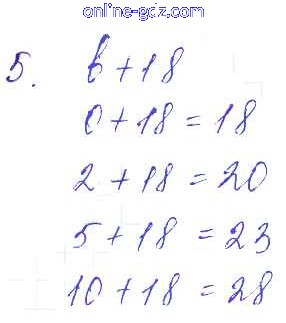 online-gdz.com
5. b + 18
0 + 18 = 18
2 + 18 = 20
5 + 18 = 23
10 + 18 = 28